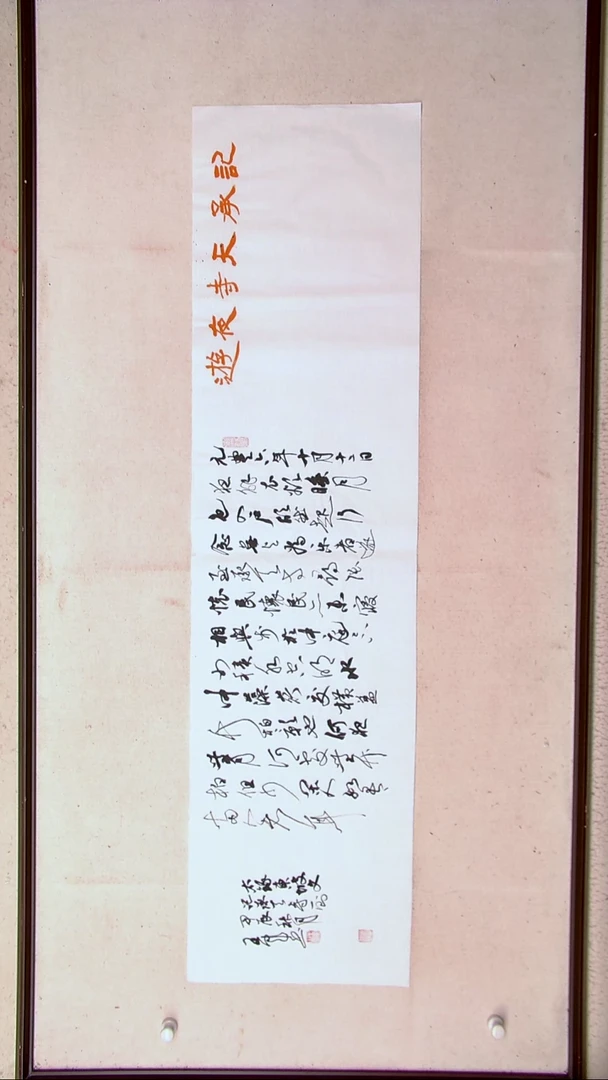 記承天寺夜遊
元豐六年十月十二日
夜解衣欲睡月
色入戶欣然起行
念無與為樂者遂
至承天寺尋張
懷民懷民亦未寢
相與步於中庭庭
下如積水空明水
中藻荇交橫蓋
竹柏影也何夜
無月何處無竹
柏但少閑人如吾
兩人者耳
右錄東坡文
記承天寺夜遊
甲辰秋月